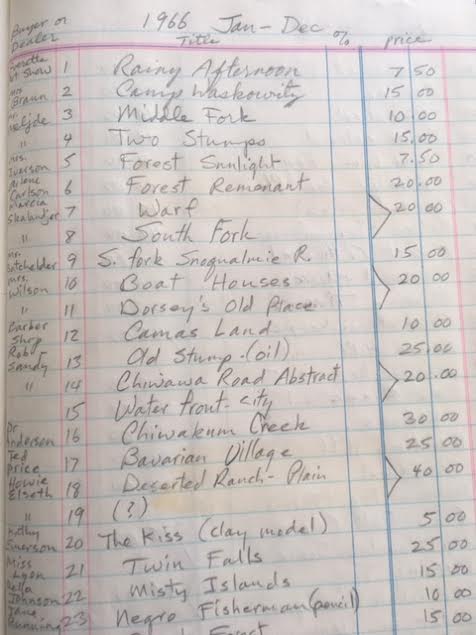 1966 Jan - Dec
Buyer or Dealer Title % price
Art Show 1 Rainy Afternoon 7 50
Mrs Braun 2 Camp Waskowitz 15 00
3 Middle Fork 10.00
" 4 Two Stumps 15.00
Mrs. Iverson 5 Forest Sunlight 7.50
Arlene Carlson 6 Forest Remenant 20.00
Marcia 7 Warf 20 00
" 8 South Fork
Mr. Batchelder 9 S. fork Snoqualmie R. 15 00
Mrs. Wilson 10 Boat Houses 20 00
" 11 Dorsey's Old Place
Barber Shop 12 Camas Land 10 00
Rob & Sandy 13 Old Stump - (oil) 25.00
" 14 Chiwawa Road Abstract 20.00
15 Water front - city
Dr Anderson 16 Chiwakum Creek 30 00
Ted Price 17 Bavarian Village 25 00
Howie Elseth 18 Deserted Ranch - Plain 40 00
" 19 (?)
Kathy Emerson 20 The Kiss (clay model) 5 00
Miss Lyon 21 Twin Falls 25 00
Della Johnson 22 Misty Islands 15 00
Jane 23 Negro Fisherman (pencil) 10 00
Forest 15 00